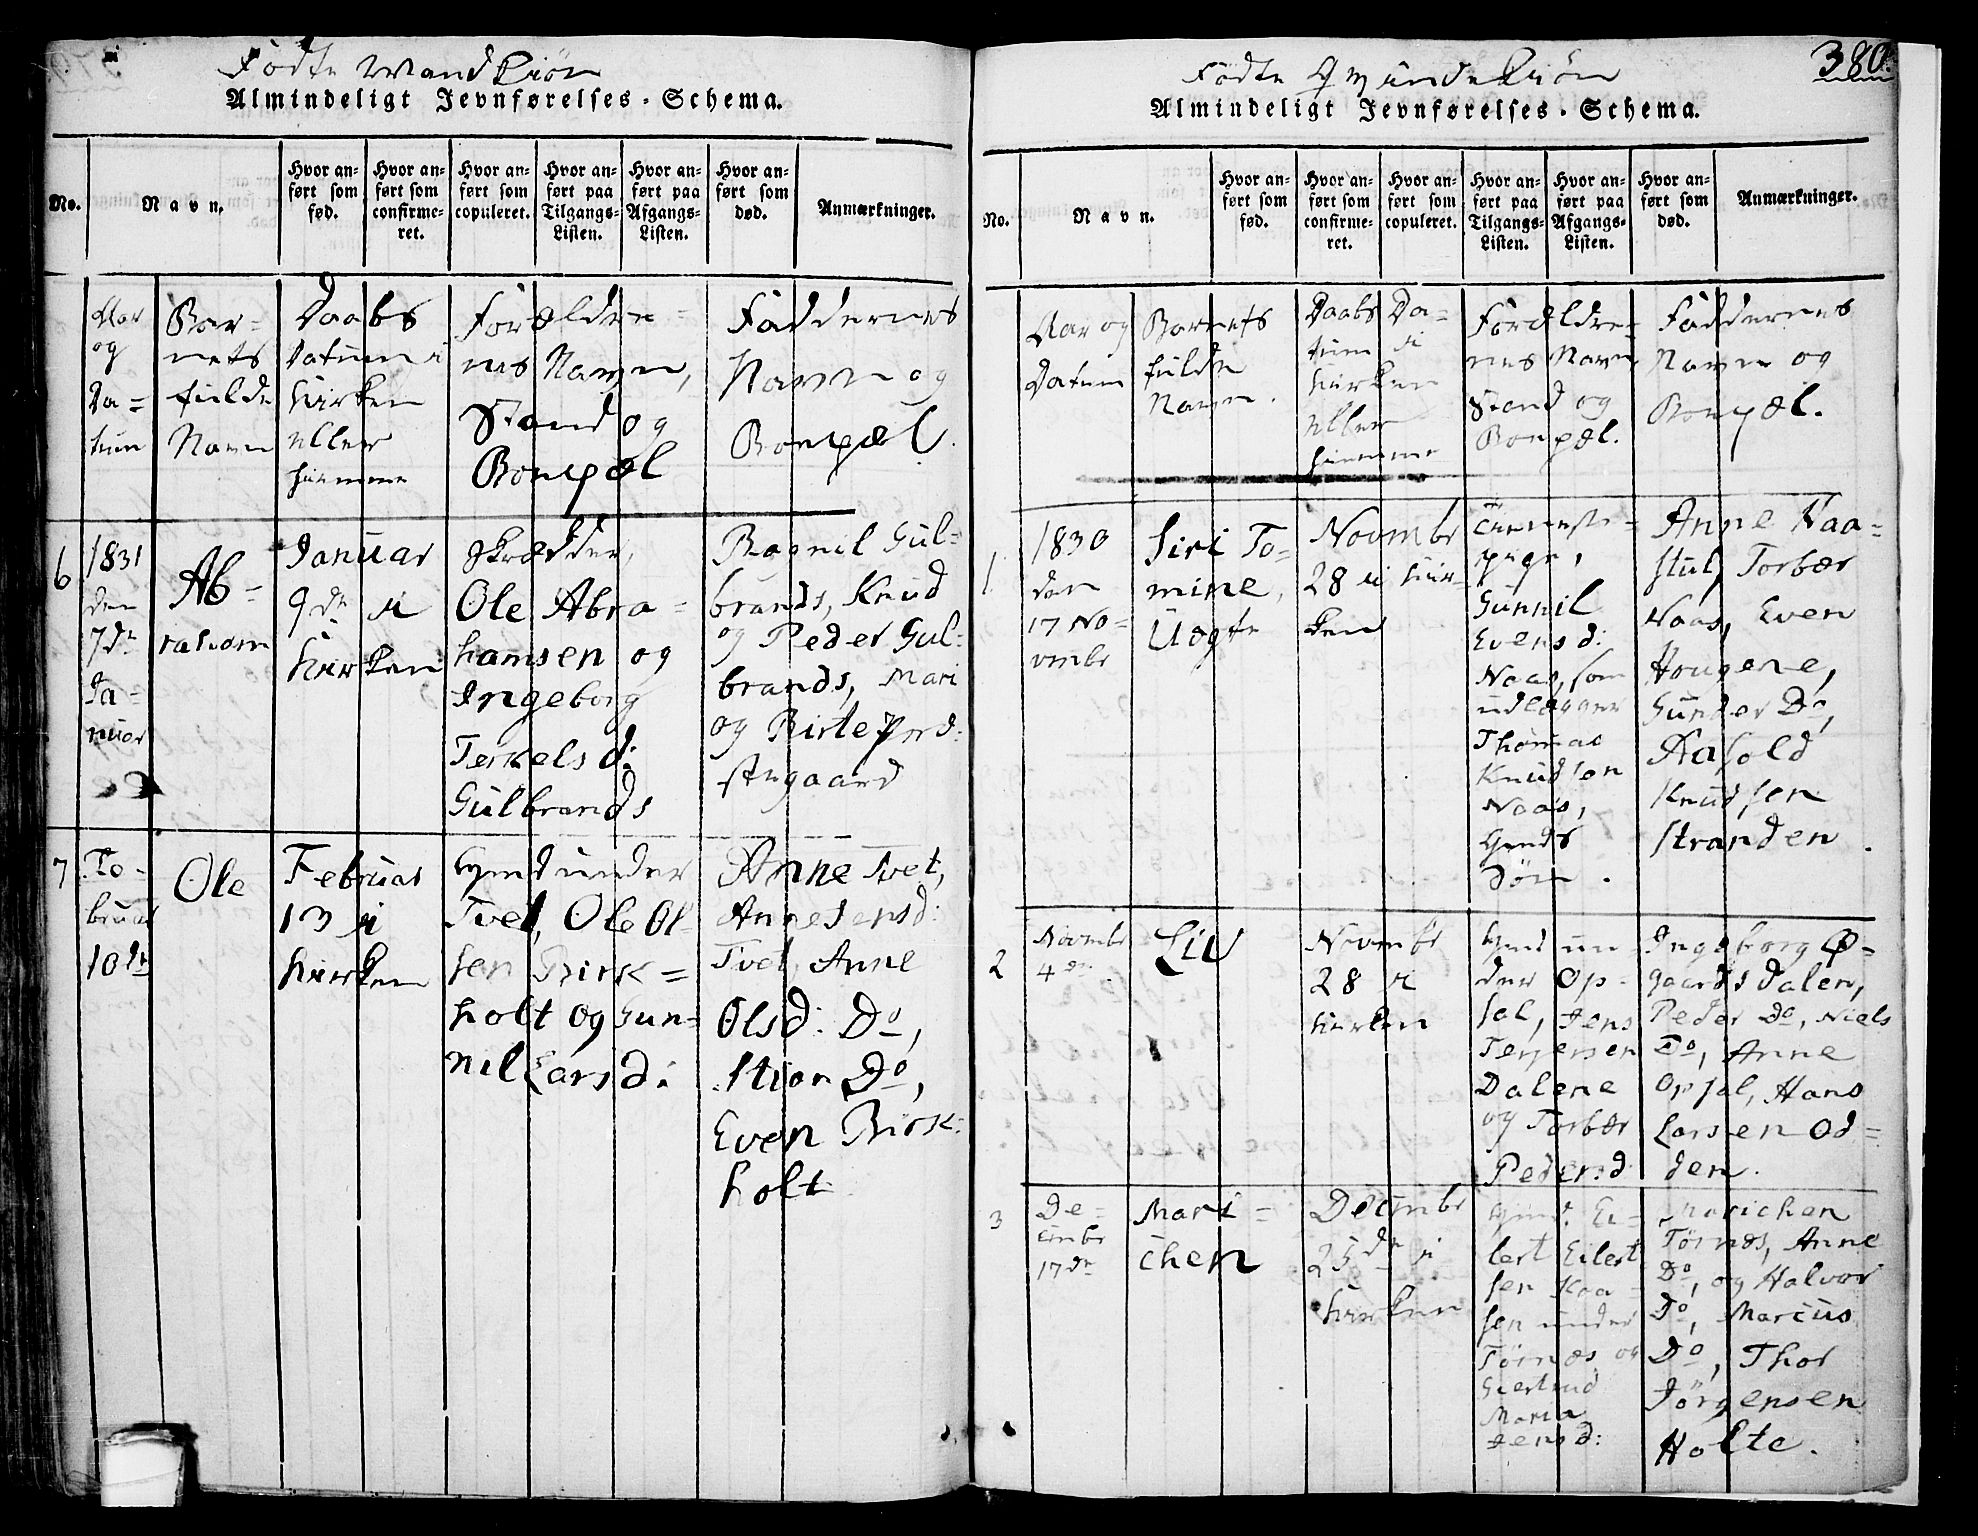 Födte Mandkiön
Almindeligt Jevnførelses-Schema.
No.
Navn.
Hvor an-
ført som
fød.
Hvor an-
ført som
confirme-
ret.
Hvor an-
ført som
copuleret.
Hvor an-
ført paa
Tilgangs-
Listen.
Hvor an-
ført paa
Afgangs-
Listen.
Hvor an-
ført som
død.
Anmærkninger.
Aar
og
Da=
tum
Bar=
nets
fulde
Navn
Daabs
Datum i
Kirken
eller
hiemme
Forældre=
nes Navn,
Stand og
Bopæl
Faddernes
Navn og
Bopæl.
6
1831
den
7de
Ja=
nuar
Ab=
raham
Januar
9de i
Kirken
Skrædder,
Ole Abra=
hamsen og
Ingeborg
Terkelsd:
Gulbrands
Ragnil Gul=
brands, Knud
og Peder Gul=
brands, Mari
og Birte
7
Fe-
bruar
10de
Ole
Februar
13 i
Kirken
Gmd under
Tvet, Ole Ol-
sen Birk=
holt og Gun=
nil Larsd:
Anne Tvet,
Anne Jensd:
Tvet, Anne
Olsd: Do,
Stian Do,
Even Birk:
holt
380.
Födte Qvindekiön
Almindeligt Jevnførelses-Schema.
No.
Navn.
Hvor an-
ført som
fød.
Hvor an-
ført som
confirme-
ret.
Hvor an-
ført som
copuleret.
Hvor an-
ført paa
Tilgangs-
Listen.
Hvor an-
ført paa
Afgangs-
Listen.
Hvor an-
ført som
død.
Anmærkninger.
Aar og
Datum
Barnets
fulde
Navn.
Daabs Da=
tum i
Kirken
eller
hiemme
Forældre=
nes Navn,
Stand og
Bopæl.
Faddernes
Navn og
Bopæl.
1
1830
den
17 No=
vmbr
Siri To=
mine,
Uægte
Novmbr
28 i Kir=
ken
Tieneste=
pige,
Gunnil
Evensd:
Naas, som
udlægger
Thomas
Knudsen
Naas,
Gmds
Sön.
Anne Naa=
stul, Torbær
Naas, Even
Hougene,
Gunder Do,
Aasold
Knudsen
Stranden.
2
Novmbr
4de
Liv
Novmbr
28 i
Kirken
Gmd un=
der Op=
sal, Jens
Terjersen
Dalene
og Torbær
Pedersd
Ingeborg Ø=
gaardsdalen,
Peder Do, Niels
Do, Anne
Opsal, Hans
Larsen Od=
den.
3
De=
cmbr
17de
Mari=
chen
Decmbr
25de i
Kirken
Gmd. Ei=
lert Eilert
sen Kaa=
sen under
Törnæs og
Giertrud
Maria
Jensd:
Marichen
Törnæs, Anne
Do, og Halvor
Do, Marcus
Do, Thor
Jörgensen
Holte.